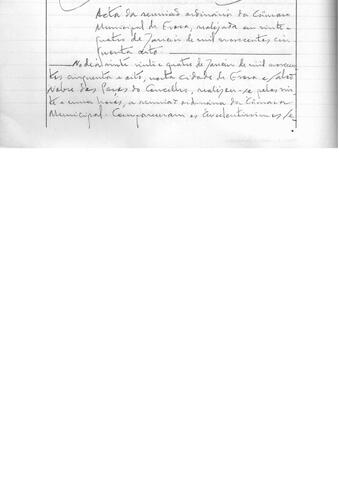 Acta da reunião ordinária da Câmara
Municipal de Evora, realizada em vinte e
quatro de Janeiro de mil novecentos cin
quenta oito.
No dia vinte e quatro de Janeiro de mil novecen
tos cinquenta e oito, nesta cidade de Evora e
Nobre dos Paços do Concelho, realizou-se pelas vin
te e uma horas, a reunião ordinária da Câmara
Municipal. Compareceram os Excelentissimos